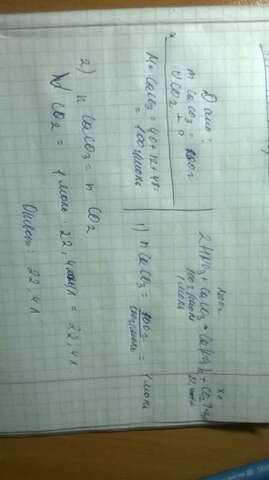 Дано:
m CaCO3 = 100г
V CO2 - ?
M CaCO3 = 40+12+48
= 100г/моль
100г
2HNO3 + CaCO3 = Ca(NO3)2 + CO2 +
100г/моль
1 моль
1) n CaCO3 = 100г / 100г/моль = 1 моль
2) n CaCO3 = n CO2
V CO2 = 1 моль · 22,4 = 22,4 л
Ответ: 22,4 л